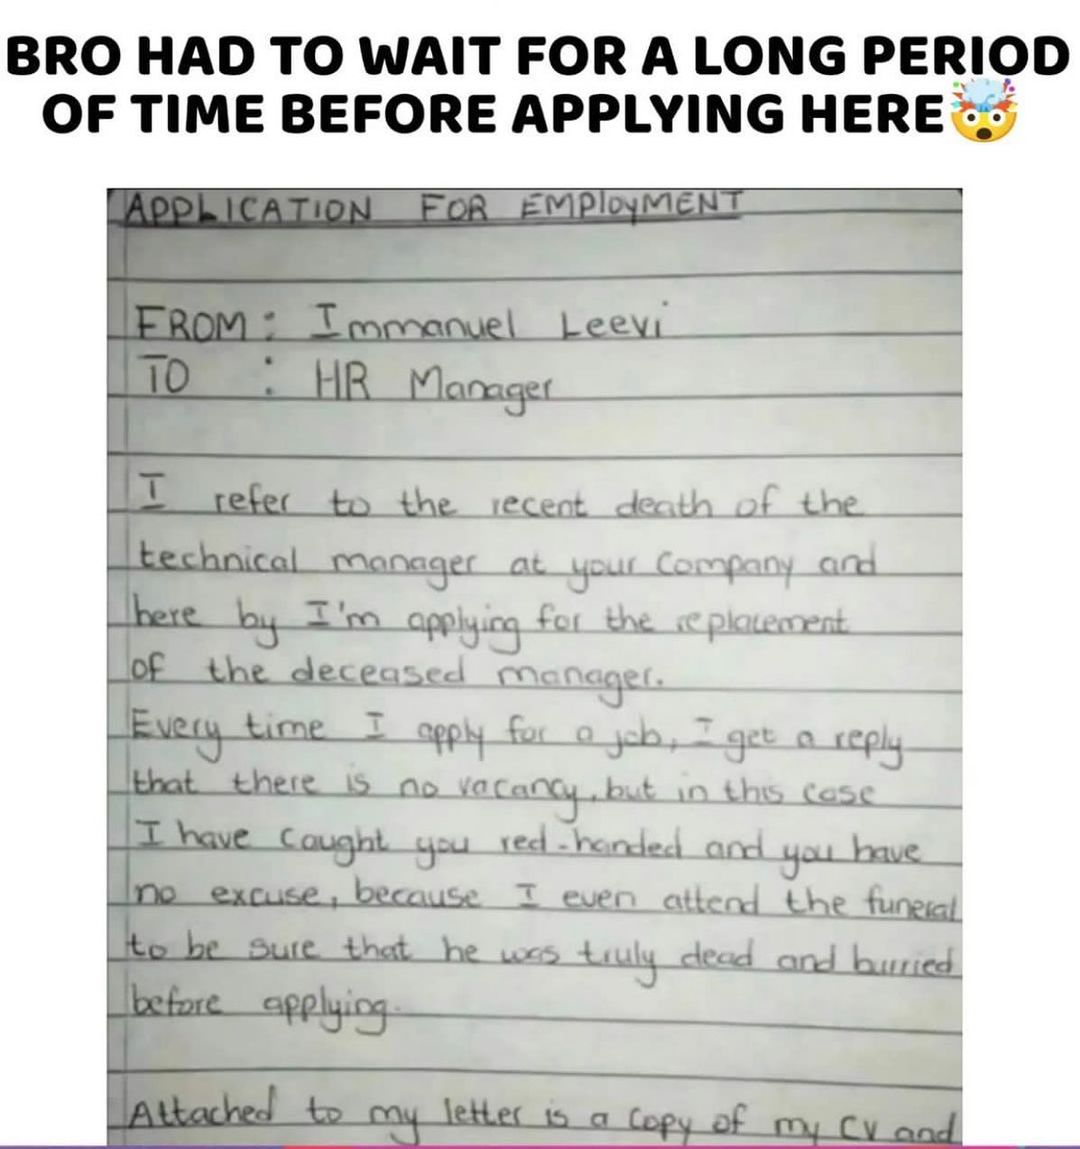 BRO HAD TO WAIT FOR A LONG PERIOD
OF TIME BEFORE APPLYING HERE🤯
APPLICATION FOR EMPLOYMENT
FROM : Immanuel Leevi
TO : HR Manager
I refer to the recent death of the
technical manager at your Company and
here by I'm applying for the replacement
of the deceased manager.
Every time I apply for a job, I get a reply
that there is no vacancy, but in this case
I have caught you red-handed and you have
no excuse, because I even attend the funeral
to be sure that he was truly dead and burried
before applying.
Attached to my letter is a copy of my CV and